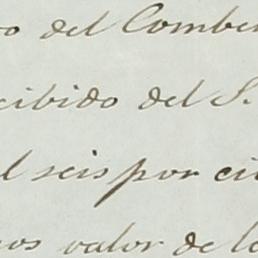 o del Conben
cibido del S.
l seis por ci
nos valor de lo